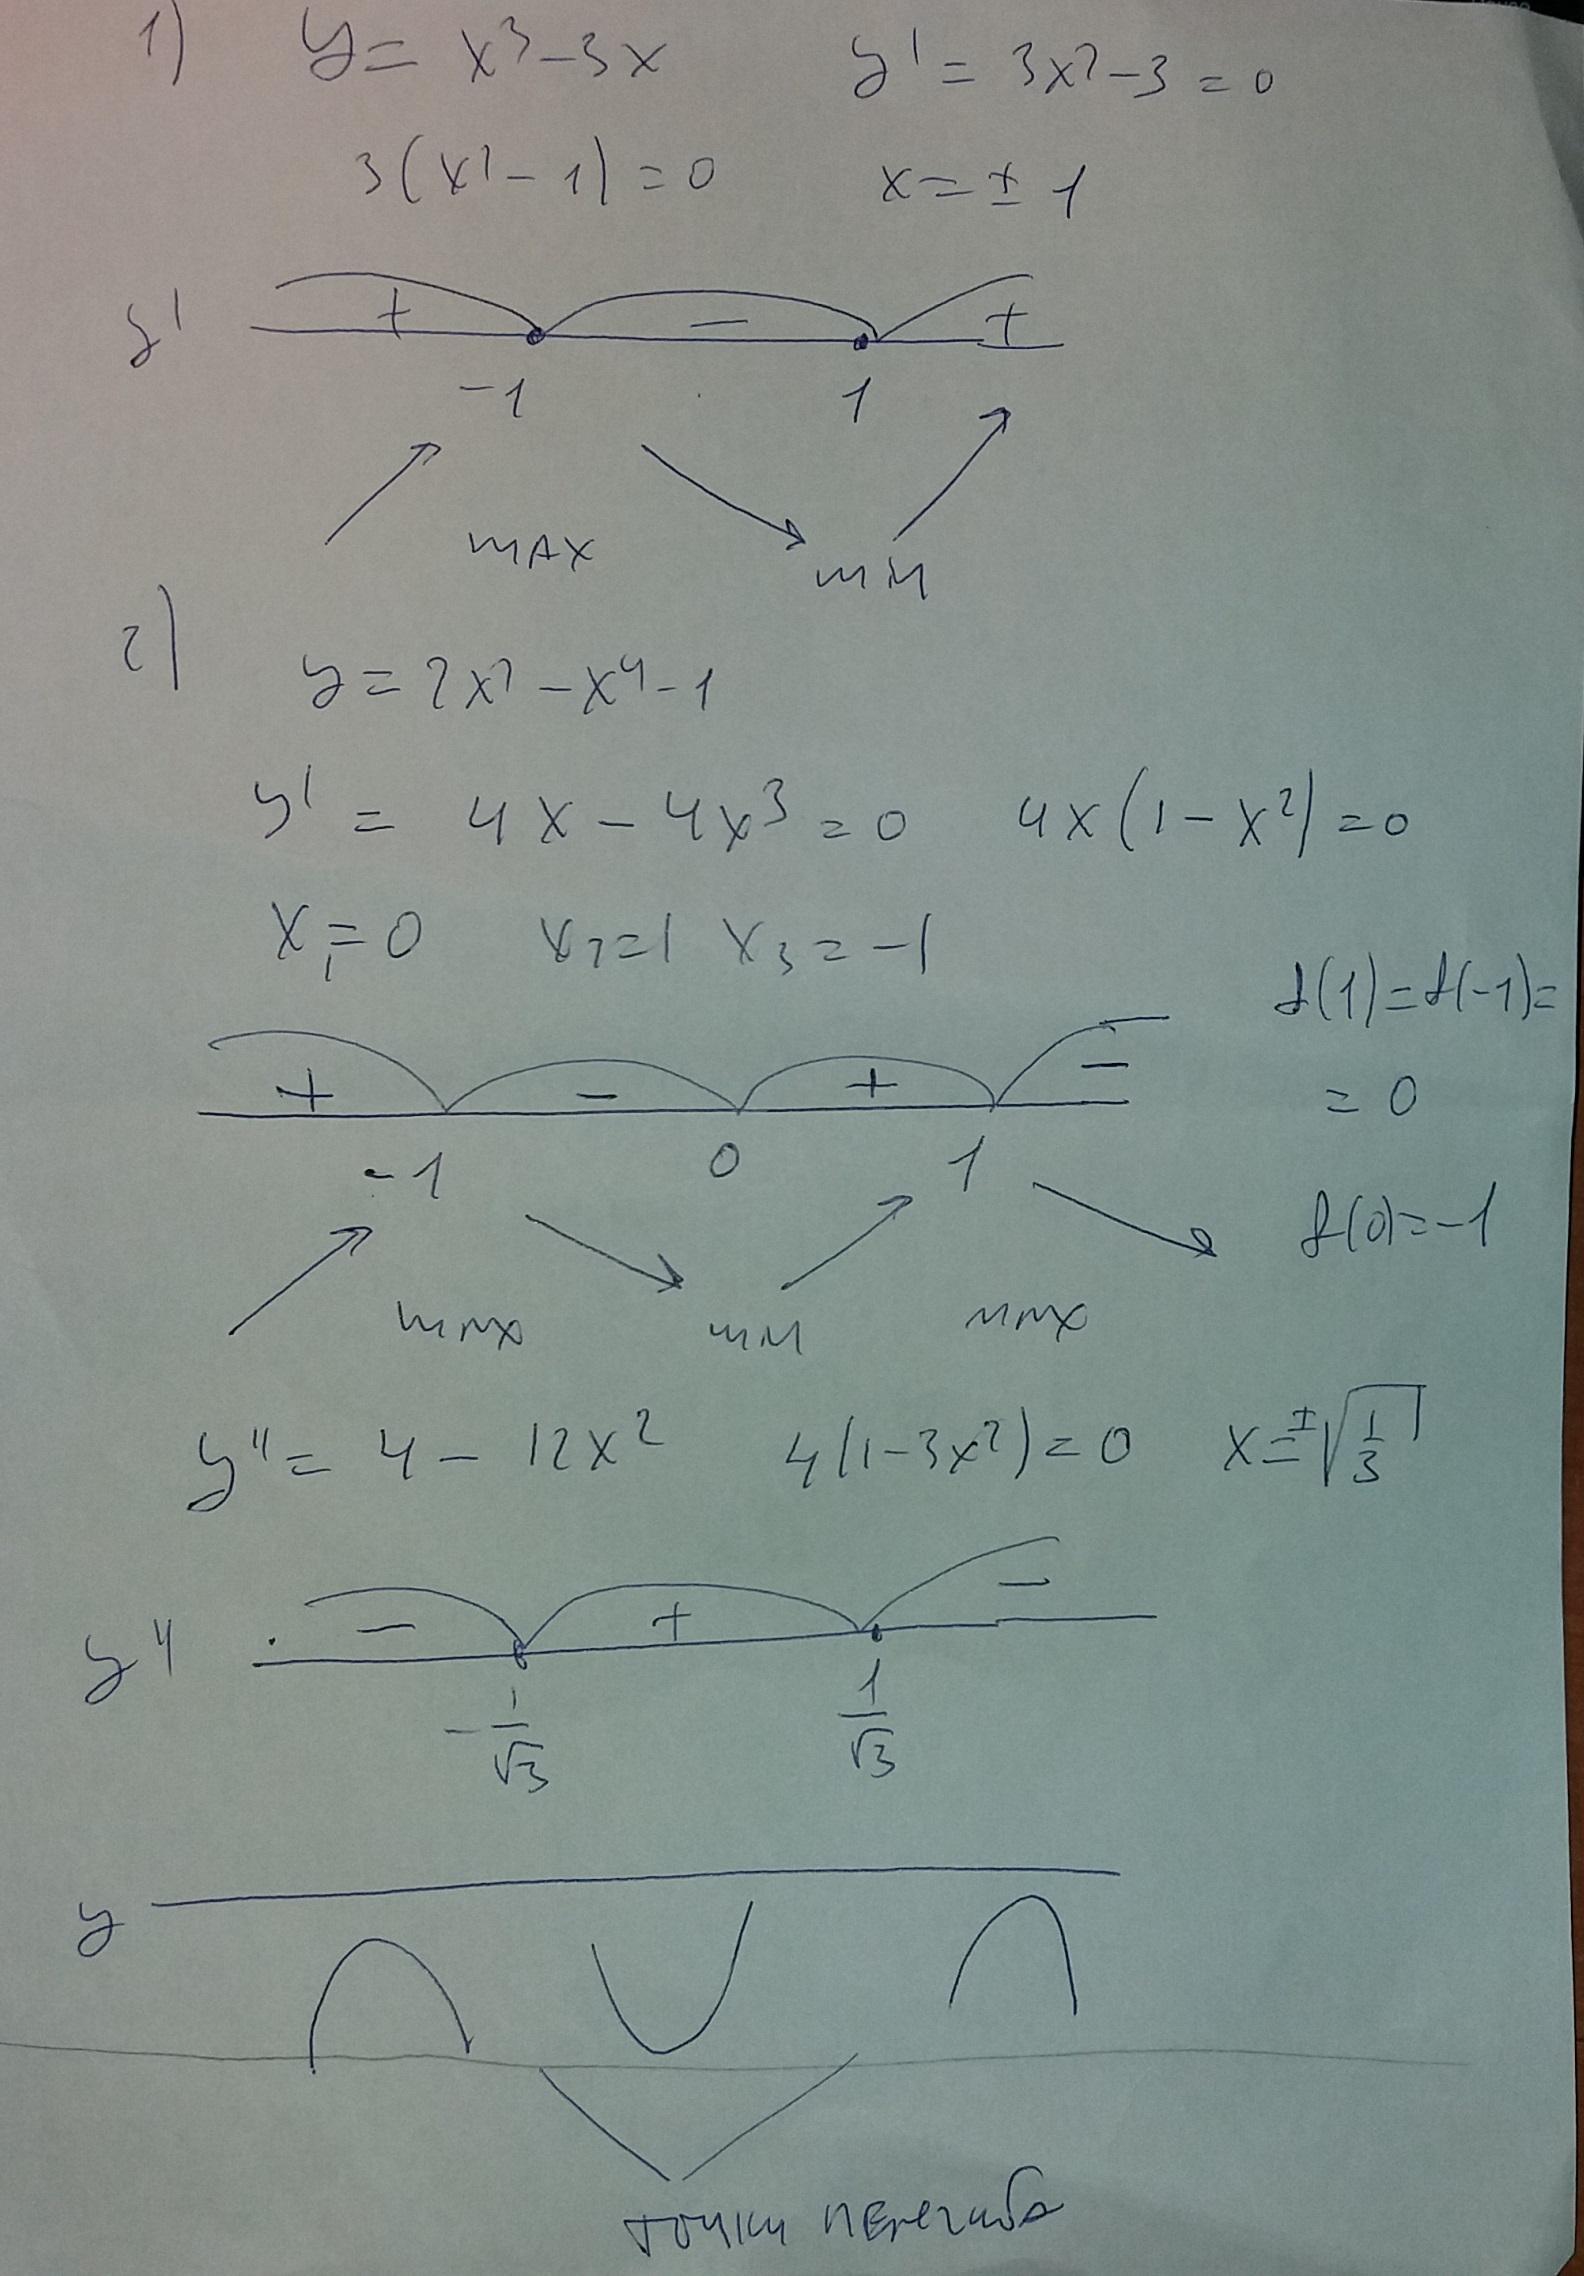 1) y = x³ - 3x y' = 3x² - 3 = 0
3(x² - 1) = 0 x = ± 1
y' + - +
-1 1
max min
2) y = 2x² - x⁴ - 1
y' = 4x - 4x³ = 0 4x(1 - x²) = 0
x₁ = 0 x₂ = 1 x₃ = -1
f(1) = f(-1) =
+ - + -
= 0
-1 0 1
f(0) = -1
max min max
y'' = 4 - 12x² 4(1 - 3x²) = 0 x = ±√(1/3)
y'' - + -
-1/√3 1/√3
y
точки перегиба